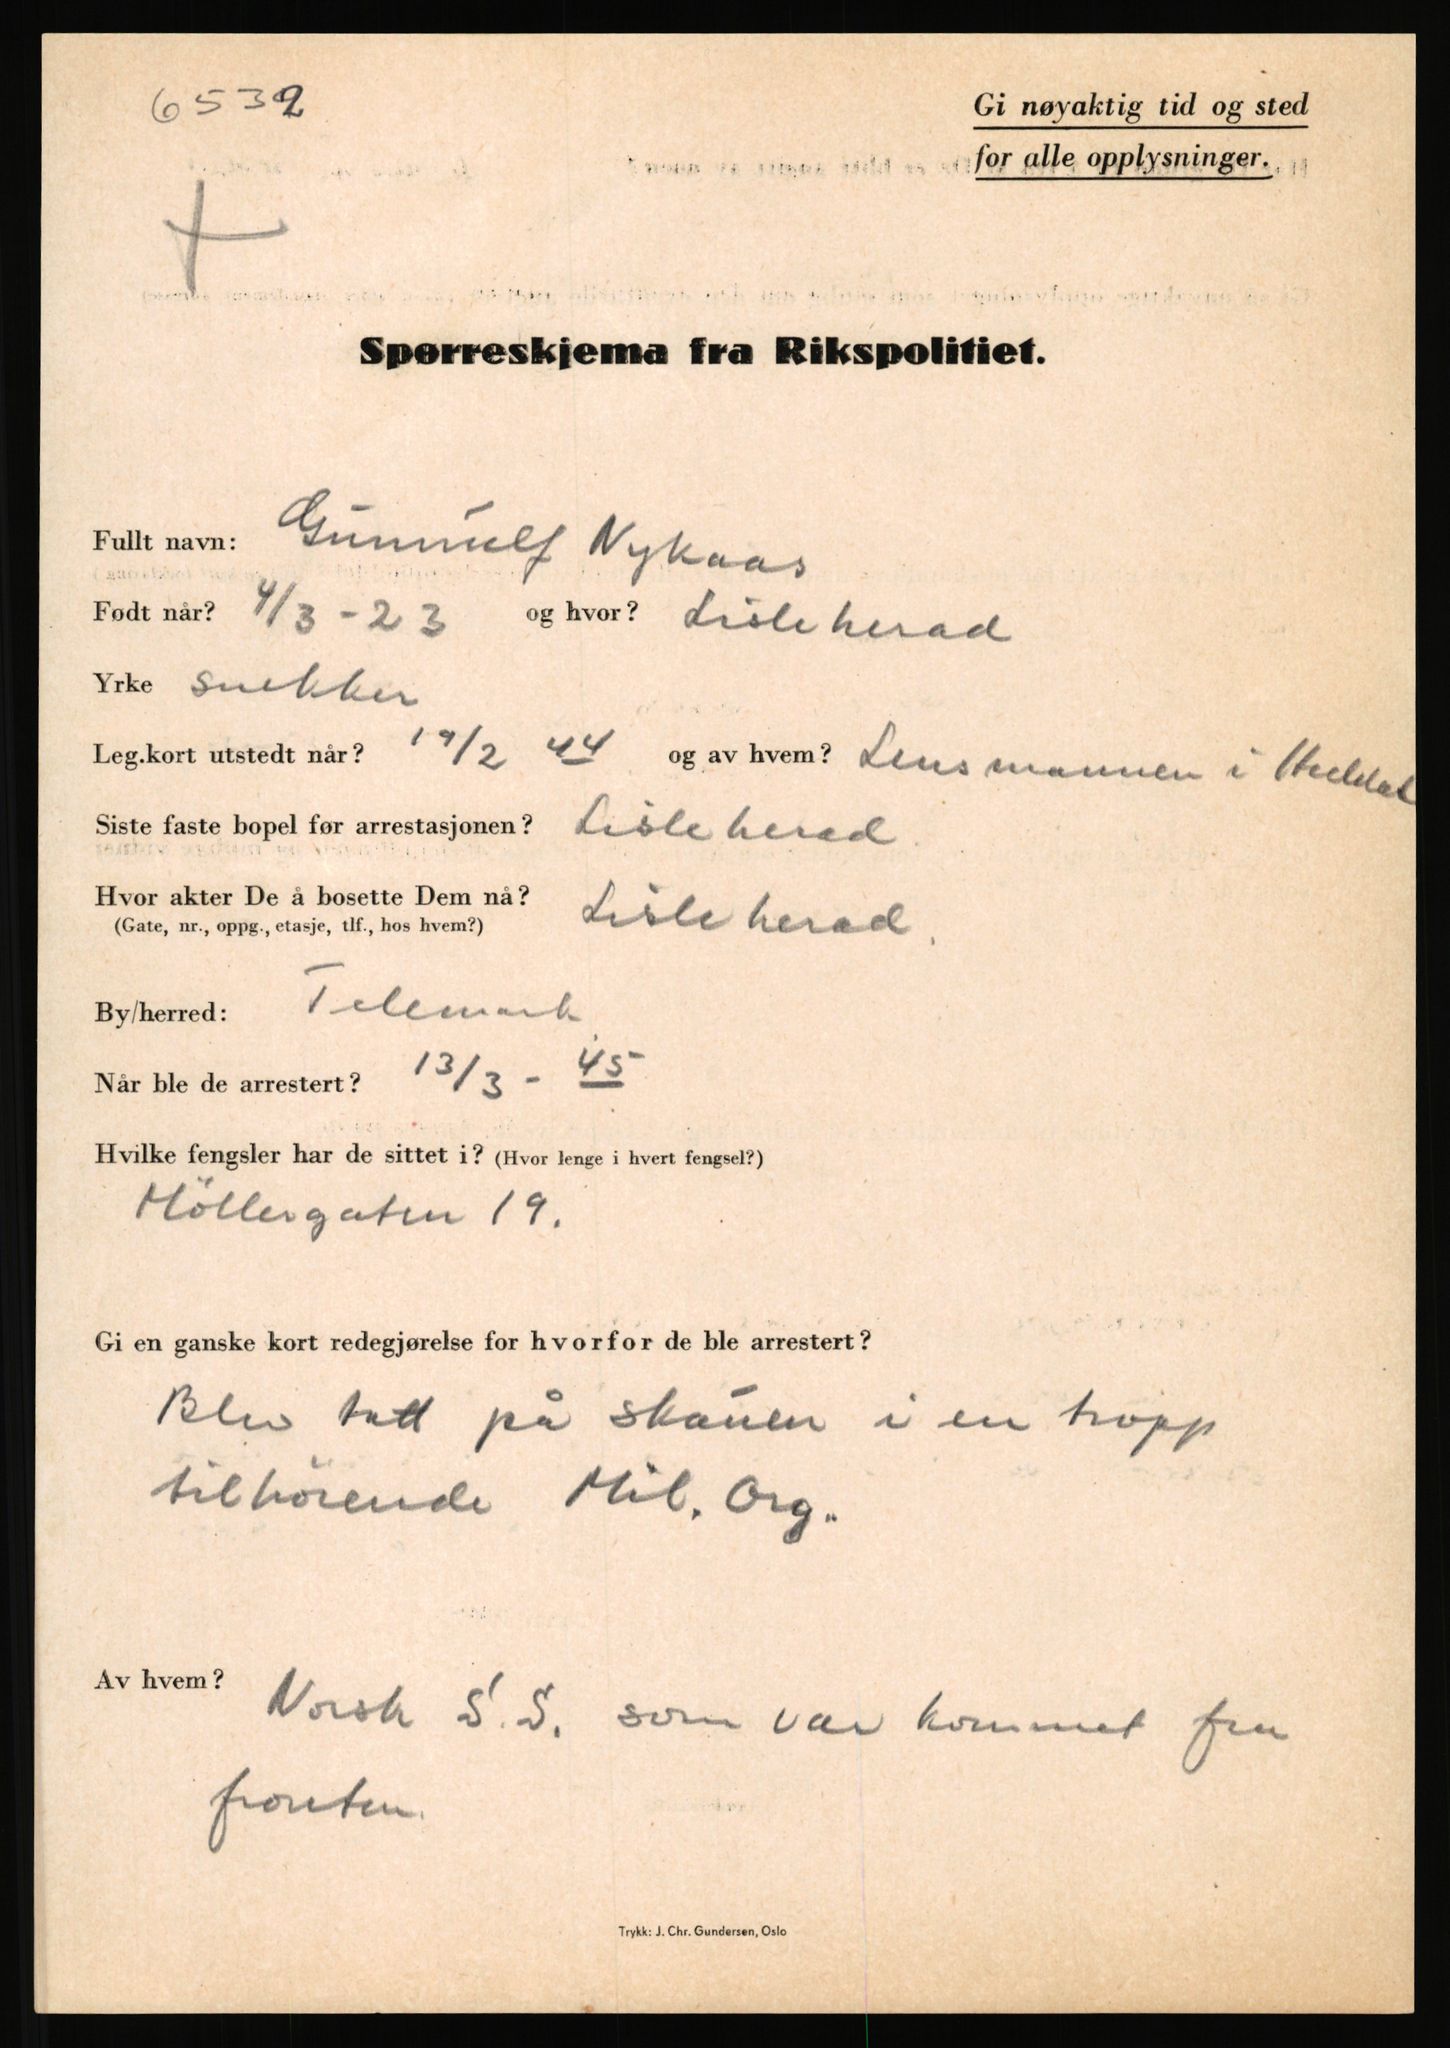 6532
Gi nøyaktig tid og sted
for alle opplysninger.
Spørreskjema fra Rikspolitiet.
Fullt navn: Gunnulf Nykaas
Født når? 4/3 - 23 og hvor? Lisleherad
Yrke snekker
Leg.kort utstedt når? 19/2 44 og av hvem? Lensmannen i Heddal
Siste faste bopel før arrestasjonen? Lisleherad
Hvor akter De å bosette Dem nå? Lisleherad.
(Gate, nr., oppg., etasje, tlf., hos hvem?)
By/herred: Telemark
Når ble de arrestert? 13/3 - 45
Hvilke fengsler har de sittet i? (Hvor lenge i hvert fengsel?)
Möllergaten 19.
Gi en ganske kort redegjørelse for hvorfor de ble arrestert?
Blev tatt på skauen i en tropp
tilhörende Mil. Org..
Av hvem? Norsk S.S. som var kommet fra
fronten.
Trykk: J. Chr. Gundersen, Oslo